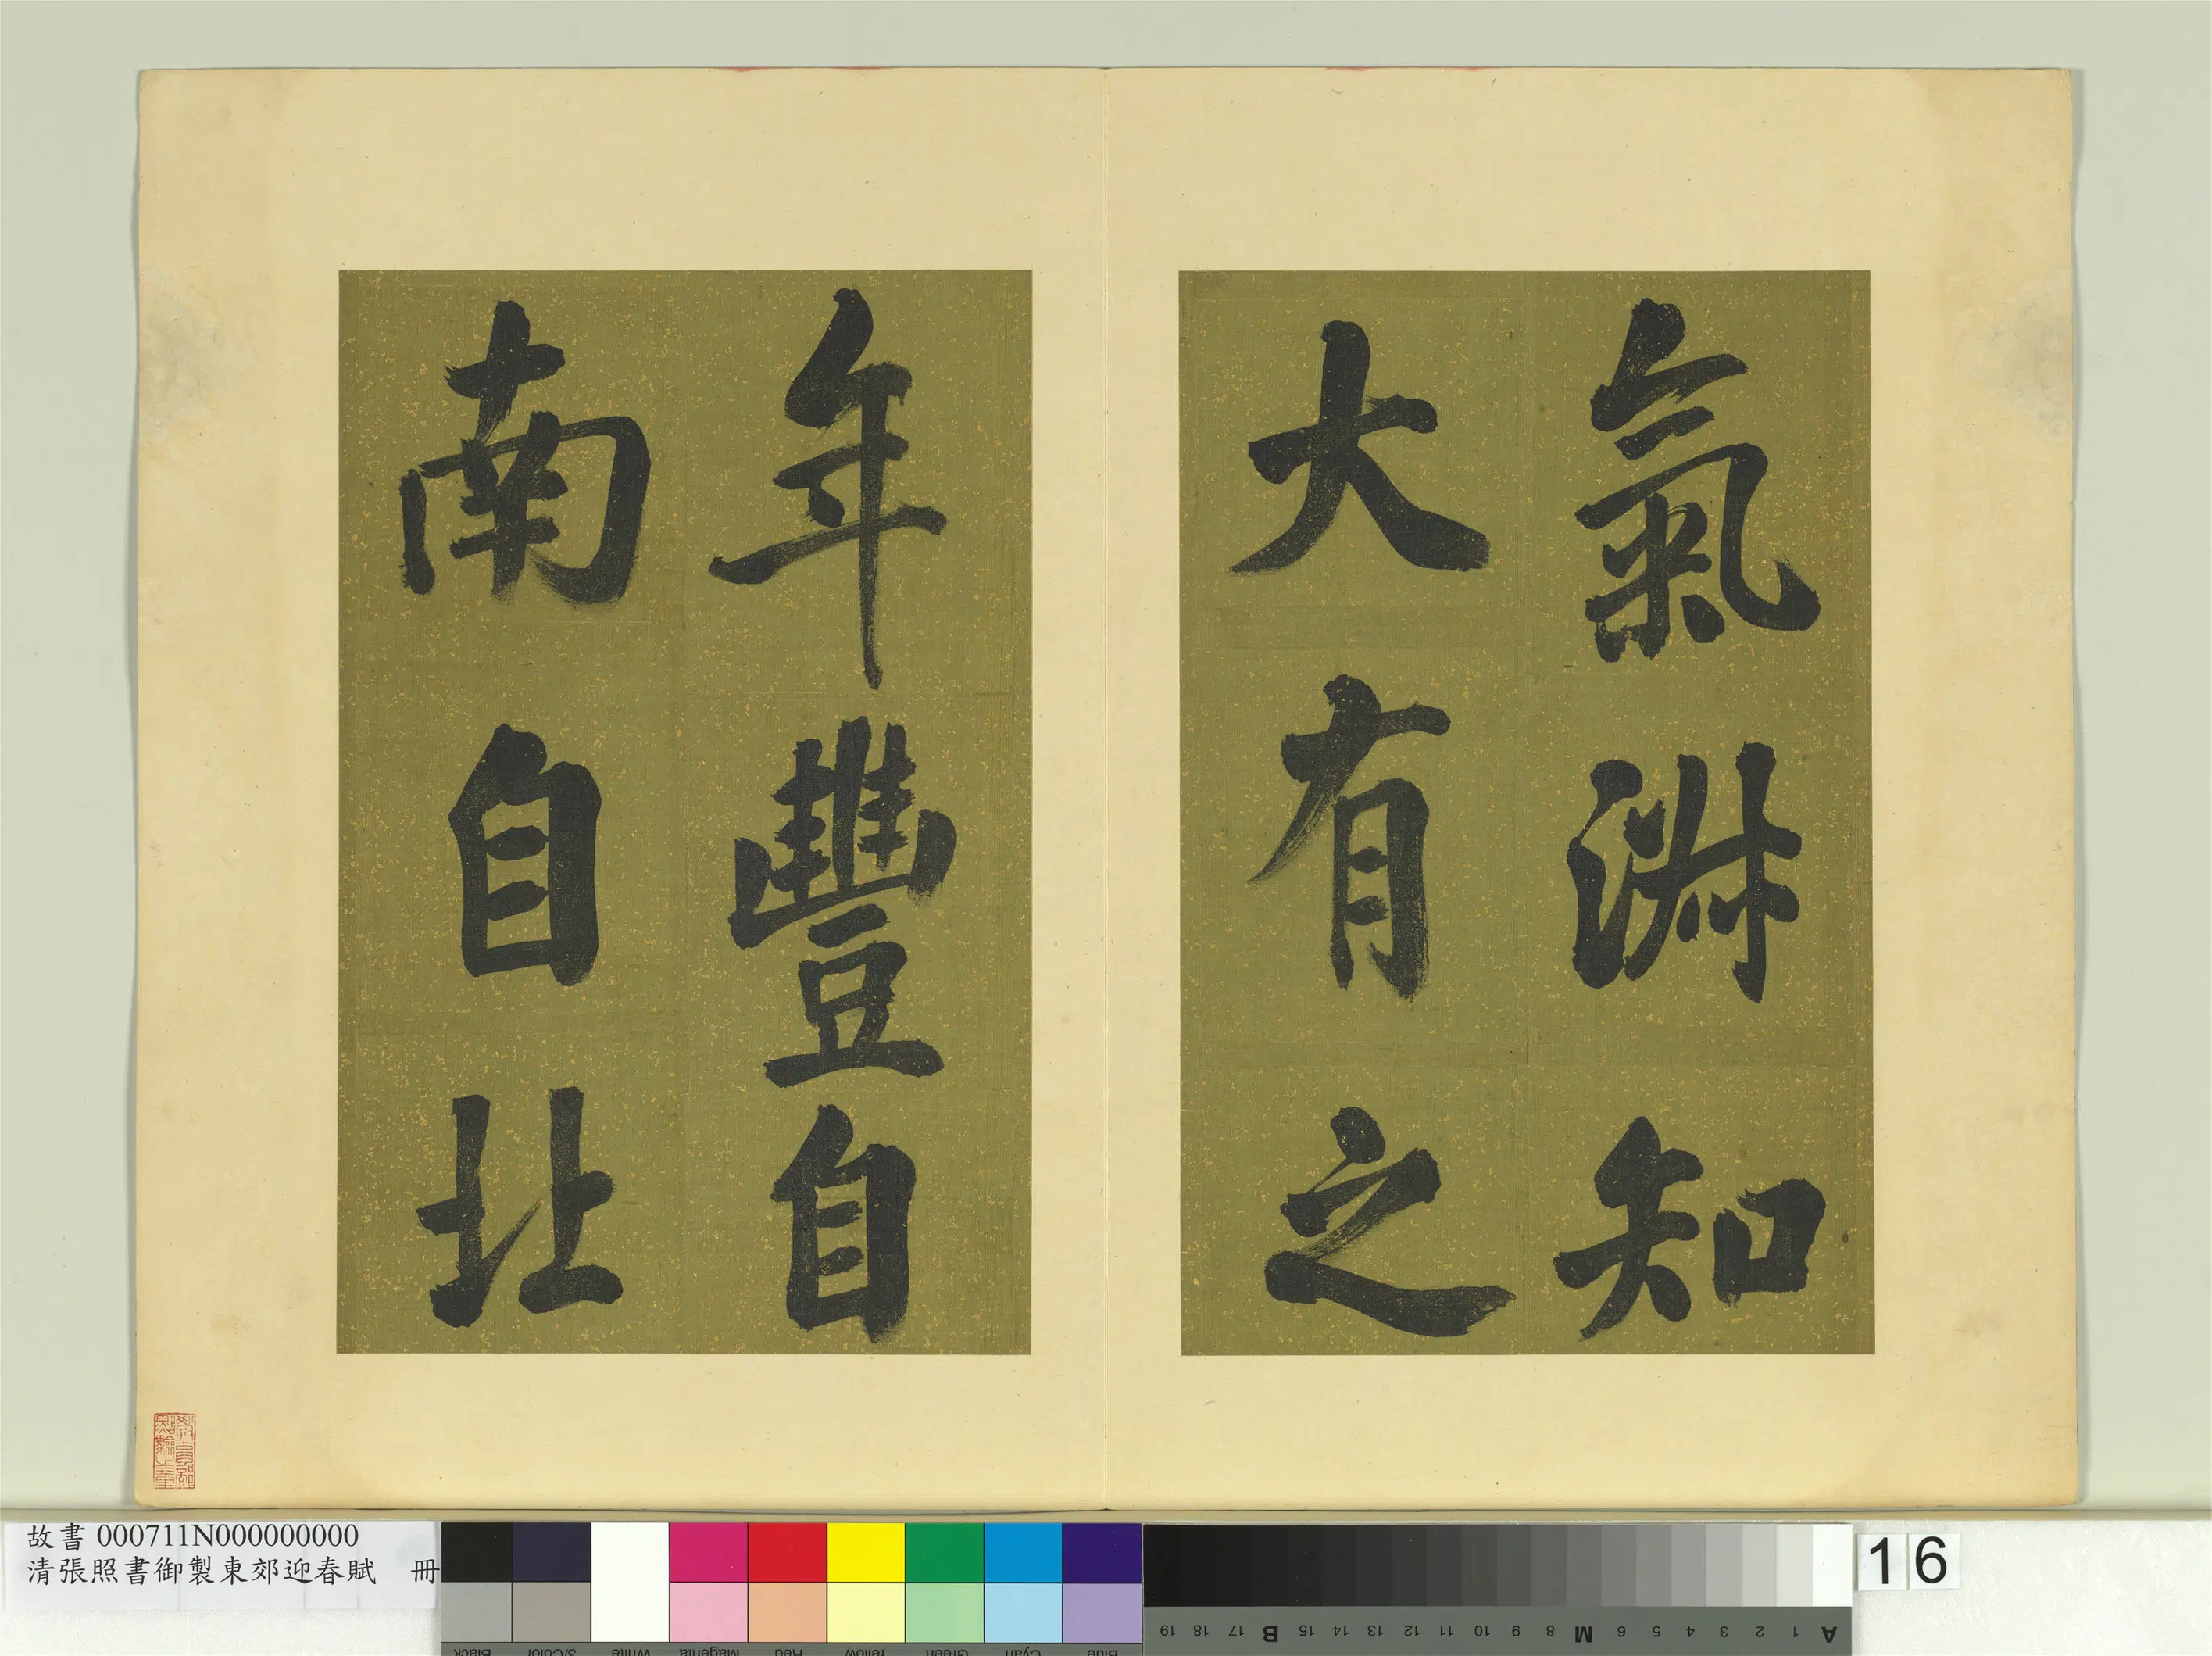 氣知
大有之
年豐自
南自北
教育部
點驗之章
故書 000711N000000000
清張照書御製東郊迎春賦 冊
Black 3/Color White Magenta Red Yellow Green Cyan Blue
19 18 17 B 15 14 13 12 11 10 9 8 M 6 5 4 3 2 1 A
16